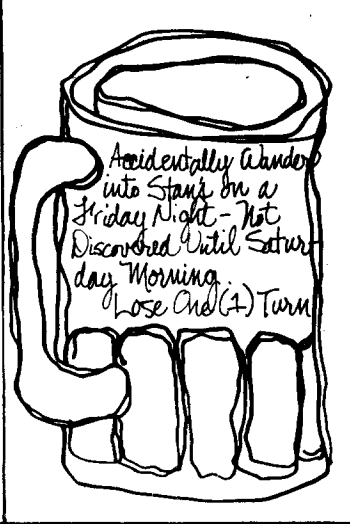 Accidentally Wander
into Stan's on a
Friday Night - Not
Discovered Until Satur-
day Morning.
Lose One (1) Turn